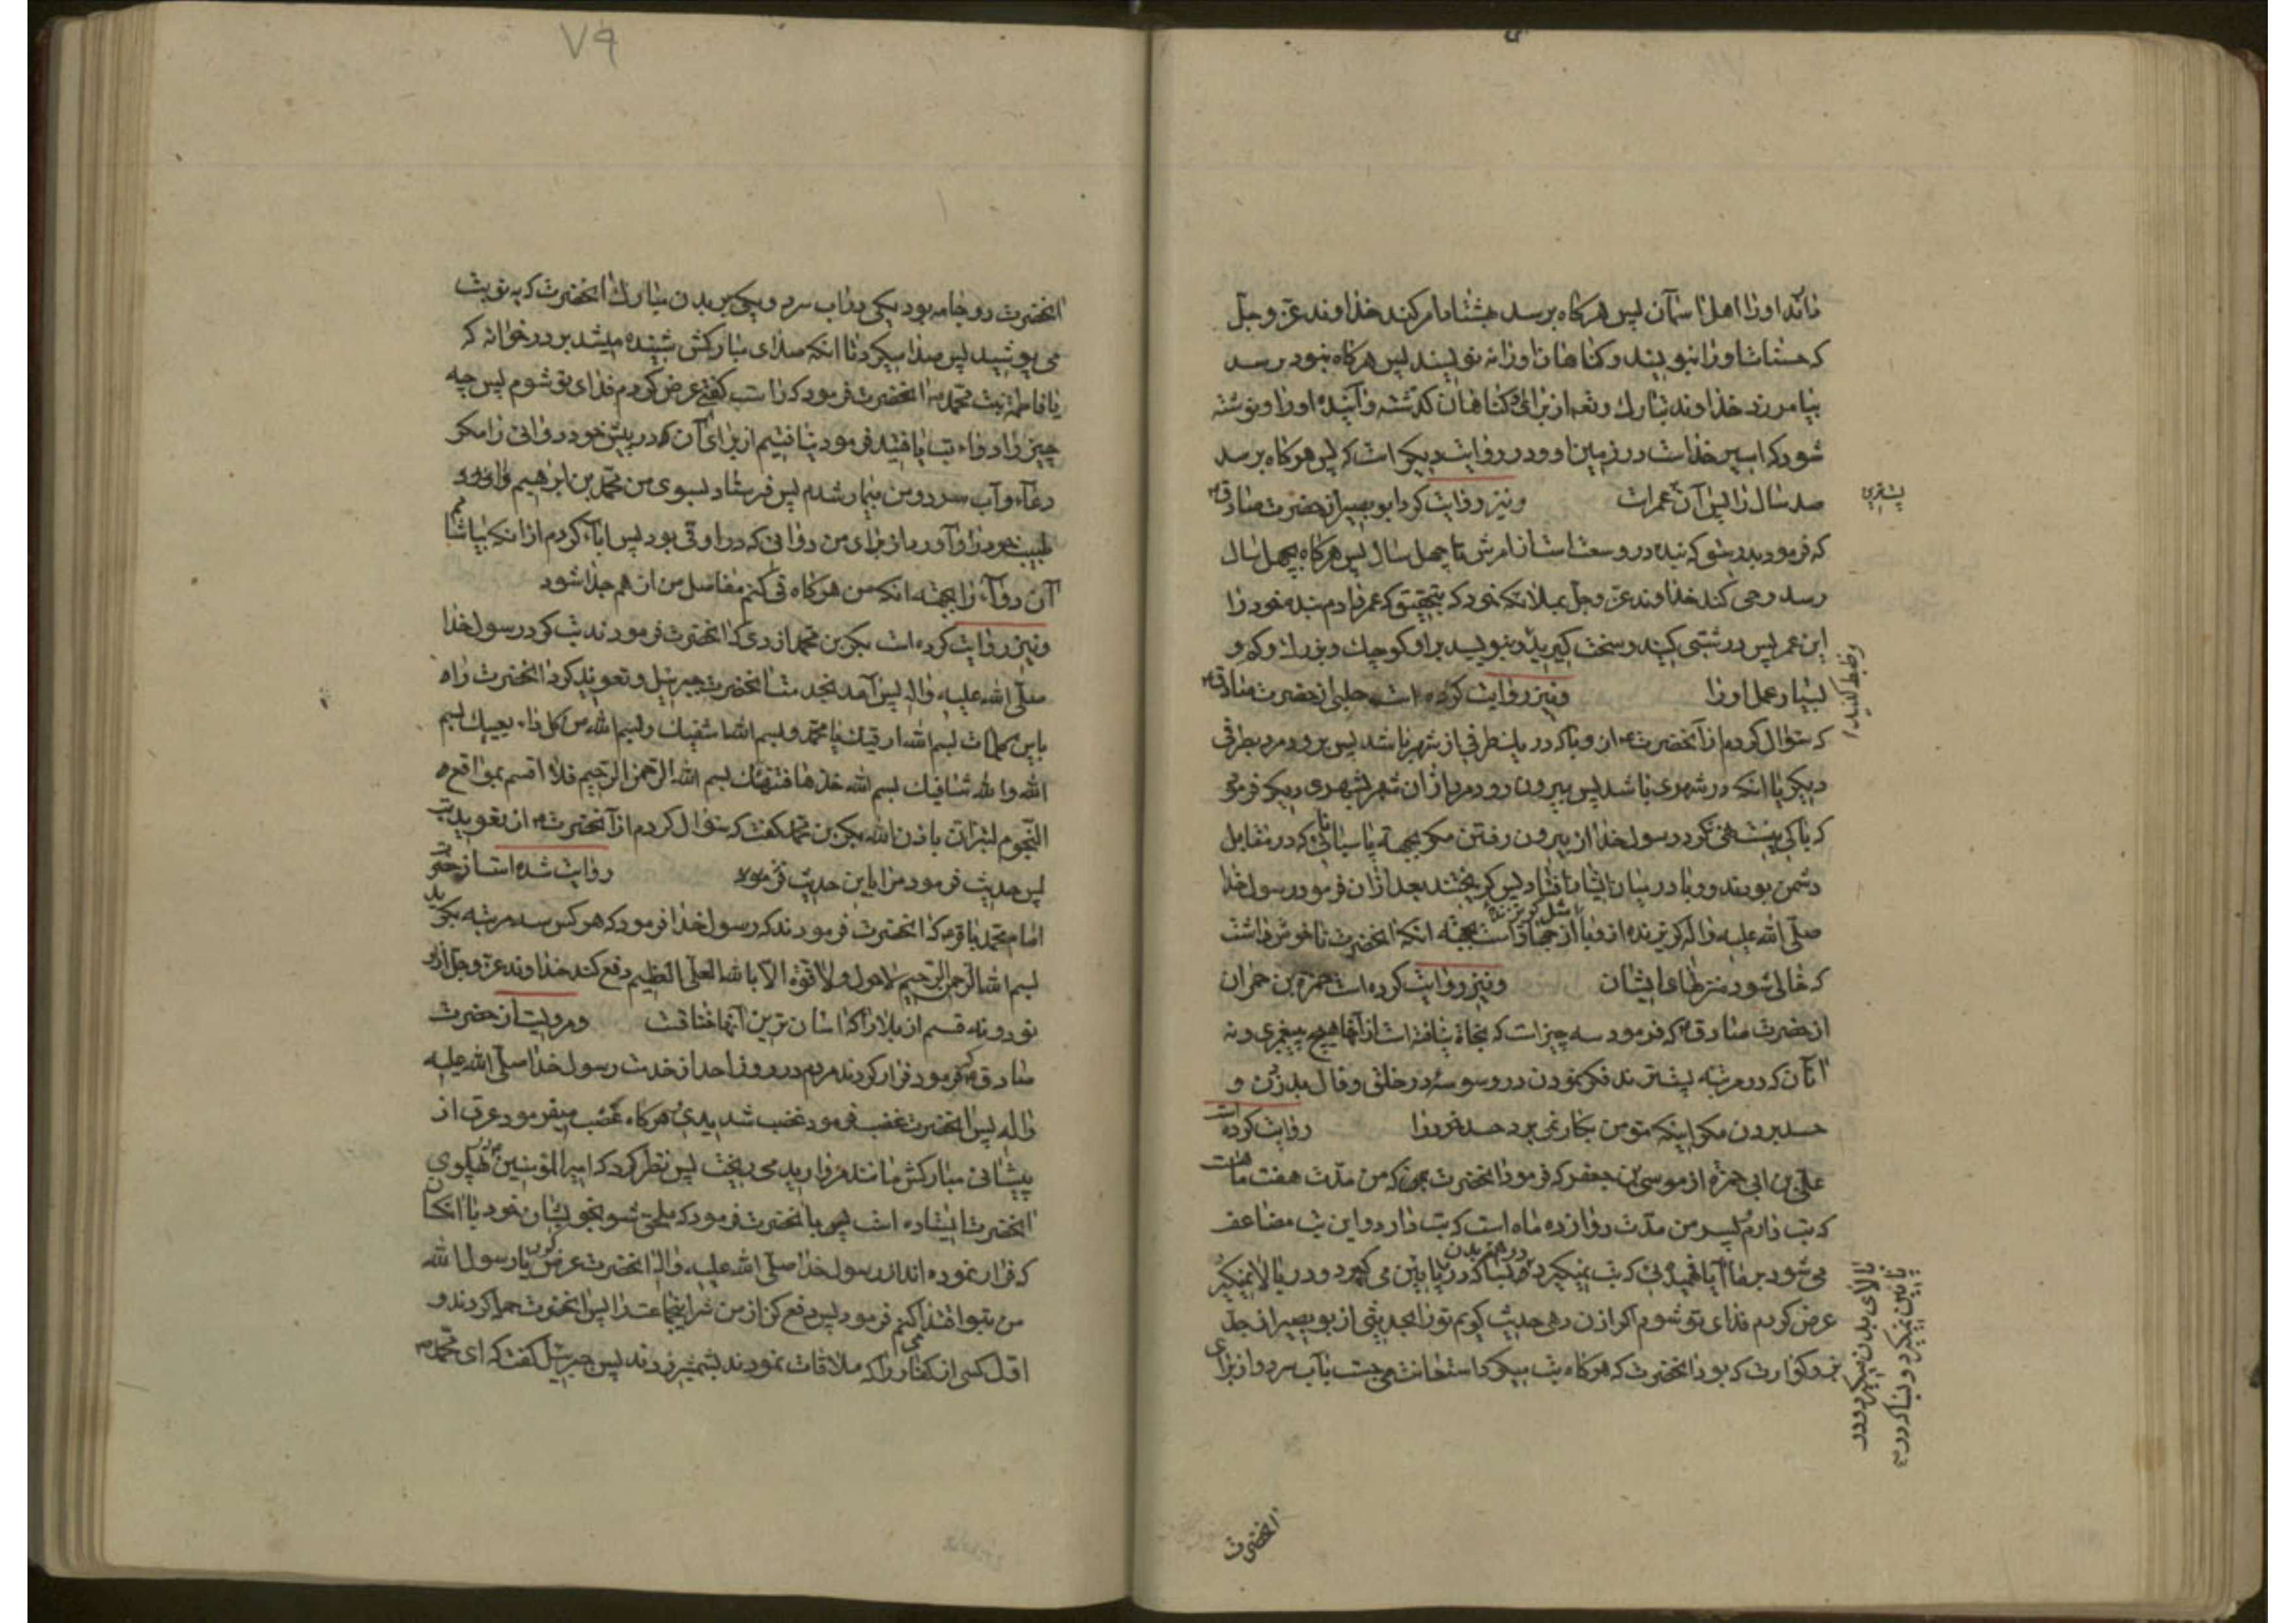 داند او را اهل اسمان پس هرگاه برسد بهشتاد امر کند خداوند عز و جل
که حسنات او را بنویسند و گناهان او را ننویسند پس هرگاه بنود برسد
بیامرزد خداوند تبارک و تعه از برای او گناهان گذشته و آینده او را و نوشته
شود که اسیر خداست در زمین او و در روایت دیگر است که پس هرگاه برسد
صد سال را پس آن عمر است ونیز روایت کرد ابوبصیر از حضرت صادق ع
که فرمود بدرستیکه بنده در وسعت است از امرش تا چهل سال پس هرگاه بچهل سال
رسد وحی کند خداوند عز و جل بملائکه خود که بتحقیق که عمر دادم بنده خود را
این عمر پس درشتی کنید و سخت گیرید و بنویسید بر او کوچک و بزرگ و کم و
بسیار عمل او را ونیز روایت کرده است حلبی از حضرت صادق ع
که سؤال کردم از آنحضرت ع از وبا که در یکطرفی از شهر باشد پس برود مرد بطرفی
دیگر یا انکه در شهری باشد پس بیرون رود مرد از ان شهر بشهری دیگر فرمود
که باکی نیست نهی نکرد رسول خدا از بیرون رفتن مگر بجهة پاسبانانی که در مقابل
دشمن بودند و وبا در میان ایشان افتاد پس گریختند بعد از ان فرمود رسول خدا
صلی الله علیه و اله گریزنده از وبا مثل گریزنده از جهاد است بجهة انکه انحضرت ناخوش داشت
که خالی شود منزلهای ایشان ونیز روایت کرده است حمزة بن حمران
از حضرت صادق ع که فرمود سه چیز است که نجاة نیافته است از آنها هیچ پیغمبری و نه
آنان که در مرتبه پستترند فکر نمودن در وسوسه در خلق و فال بد زدن و
حسد بردن مگر اینکه مؤمن بکار نمی برد حسد خود را روایت کرده است
علی بن ابی حمزه از موسی بن جعفر که فرمود انحضرت بمن که من مدت هفت ماه است
که تب دارم و پسر من مدت دوازده ماه است که تب دارد و این تب مضاعف
می شود بر ما آیا فهمیدی که تب نمیگیرد در همه بدن و بسا که در پایین می گیرد و در بالا نمیگیرد
عرض کردم فدای تو شوم اگر اذن دهی حدیث گویم تو را بحدیثی از ابو بصیر از جد
بزرگوارت که بود انحضرت که هرگاه تب میکرد استعانت می جست بآب سرد و از برای
پستتری
و ضبط کنید
بالای بدن میگیرد و در
پایین نمیگیرد و بسا که در
انحضرت
۷۹
انحضرت دو جامه بود یکی در اب سرد و یکی بر بدن مبارک انحضرت که به نوبت
می پوشید پس صدا میکرد تا انکه صدای مبارکش شنیده میشد بر در خوانه که
یا فاطمة بنت محمد ص انحضرت فرمود که راست گفتی عرض کردم فدای تو شوم پس چه
چیز را دواء تب یافتید فرمود نیافتیم از برای آن در پیش خود دوائی را مگر
دعاء و آب سرد و من بیمار شدم پس فرستاد بسوی من محمد بن ابرهیم و آورد
طبیب خود را و آورد از برای من دوائی که در او قی بود پس اباء کردم از انکه بیاشامم
آن دواء را بجهة انکه من هرگاه قی کنم مفاصل من از هم جدا شود
ونیز روایت کرده است بکر بن محمد ازدی که انحضرت فرمودند تب کرد رسول خدا
صلی الله علیه و اله پس آمد بخدمت انحضرت جبرئیل و تعویذ کرد انحضرت را ه
باین کلمات بسم الله ارقیک یا محمد و بسم الله اشفیک و بسم الله من کل داء یعییک بسم
الله و الله شافیک بسم الله خذها فتهنئک بسم الله الرحمن الرحیم فلا اقسم بمواقع
النجوم لتبرأن باذن الله بکر بن محمد گفت که سؤال کردم از آنحضرت ع از تعویذ تب
پس حدیث فرمود مرا باین حدیث فرمود روایت شده است از حضرت
امام محمد باقر ع که انحضرت فرمودند که رسول خدا فرمود که هرکس سه مرتبه بگوید
بسم الله الرحمن الرحیم لا حول ولا قوة الا بالله العلی العظیم دفع کند خداوند عز و جل از او
نود و نه قسم از بلا را که اسان ترین آنها خناق است ومرویست از حضرت
صادق ع که فرمود فرار کردند مردم در روز احد از خدمت رسول خدا صلی الله علیه
و اله پس انحضرت غضب فرمود غضب شدیدی و هرگاه غضب میفرمود عرق از
پیشانی مبارکش مانند مروارید می ریخت پس نظر کرد که امیر المؤمنین در پهلوی
انحضرت ایستاده است پس بانحضرت فرمود که ملحق شو بخویشان خود با انکسان
که فرار نموده اند از رسول خدا صلی الله علیه و اله انحضرت عرض کرد یا رسول الله
من بتو اقتدا کنم فرمود پس دفع کن از من شر اینجماعت را پس انحضرت حمله کردند و
اول کسی از کفار را که ملاقات نمودند شمشیر زدند پس جبرئیل گفت که ای محمد ص